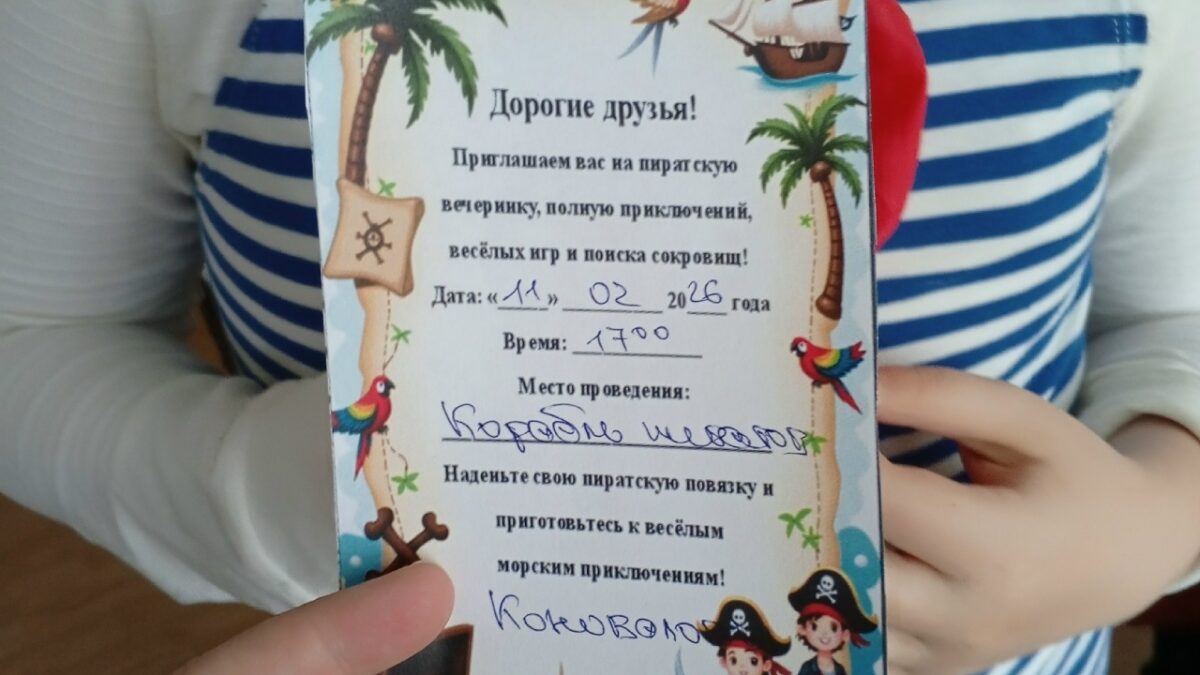 Дорогие друзья!
Приглашаем вас на пиратскую
вечеринку, полную приключений,
весёлых игр и поиска сокровищ!
Дата: «11» 02 2026 года
Время: 17⁰⁰
Место проведения:
Корабль
Наденьте свою пиратскую повязку и
приготовьтесь к весёлым
морским приключениям!